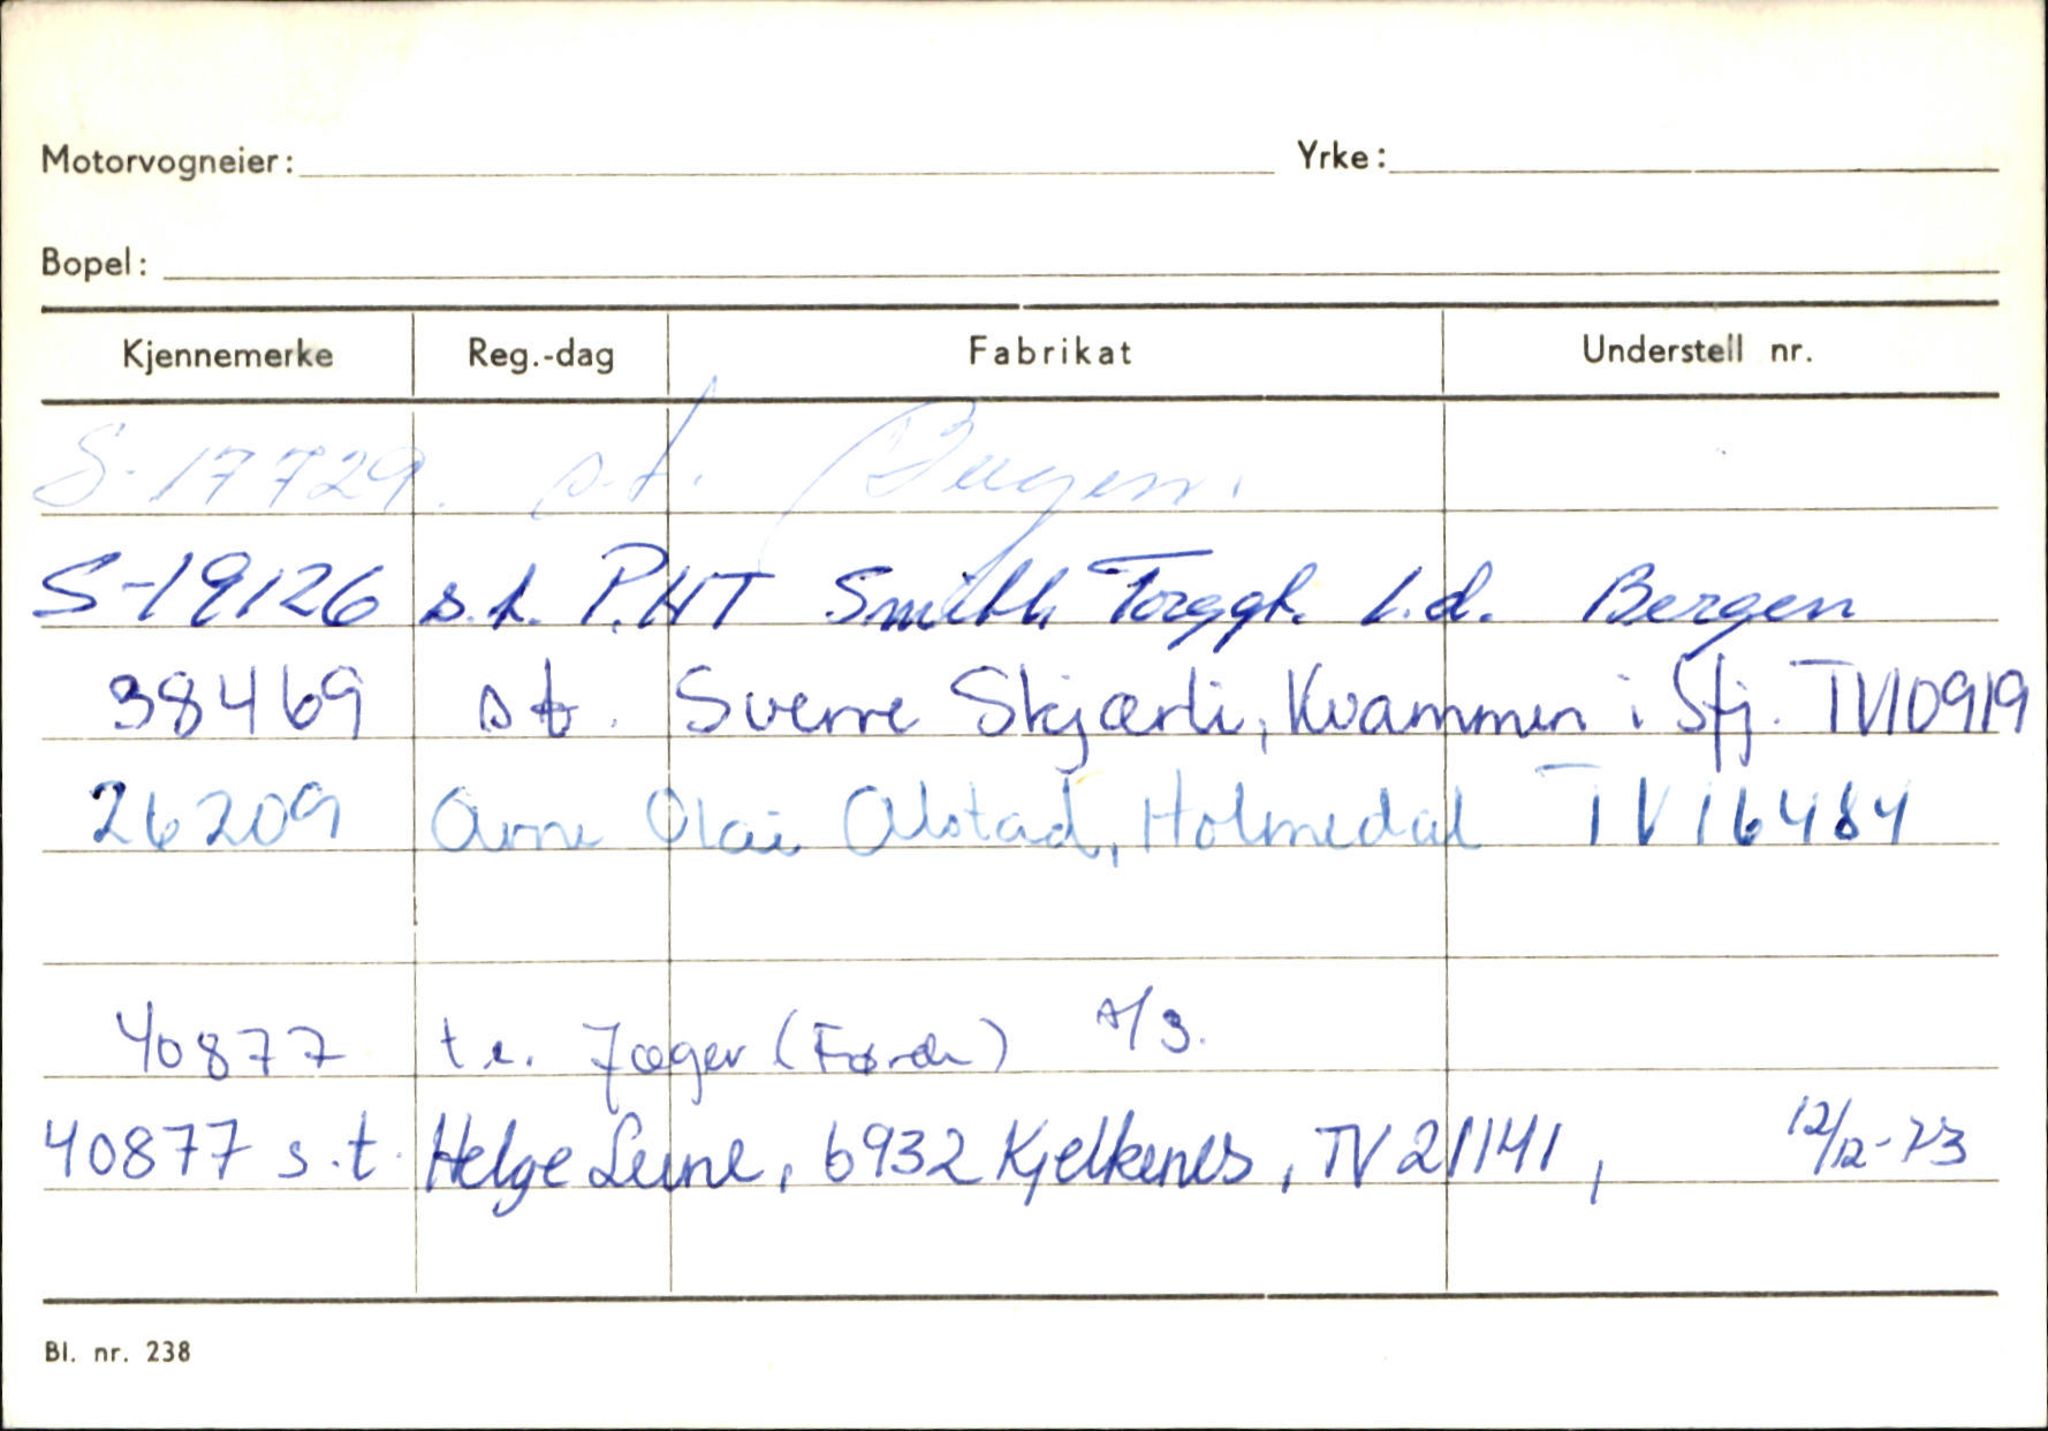 Motorvogneier: Yrke:
Bopel:
Kjennemerke Reg.-dag Fabrikat Understell nr.
S-17729. s.t. Bergen.
S-19126 s.t. P.HT Smith Torggt. 1.d. Bergen
38469 s t. Sverre Skjærli, Kvammen i Sfj. TV10919
26209 Arne Olai Alstad, Holmedal TV16484
40877 t.r. Jæger (Førde) /3.
40877 s.t. Helge Leine, 6932 Kjelkenes, TV21141, 12/12-73
Bl. nr. 238